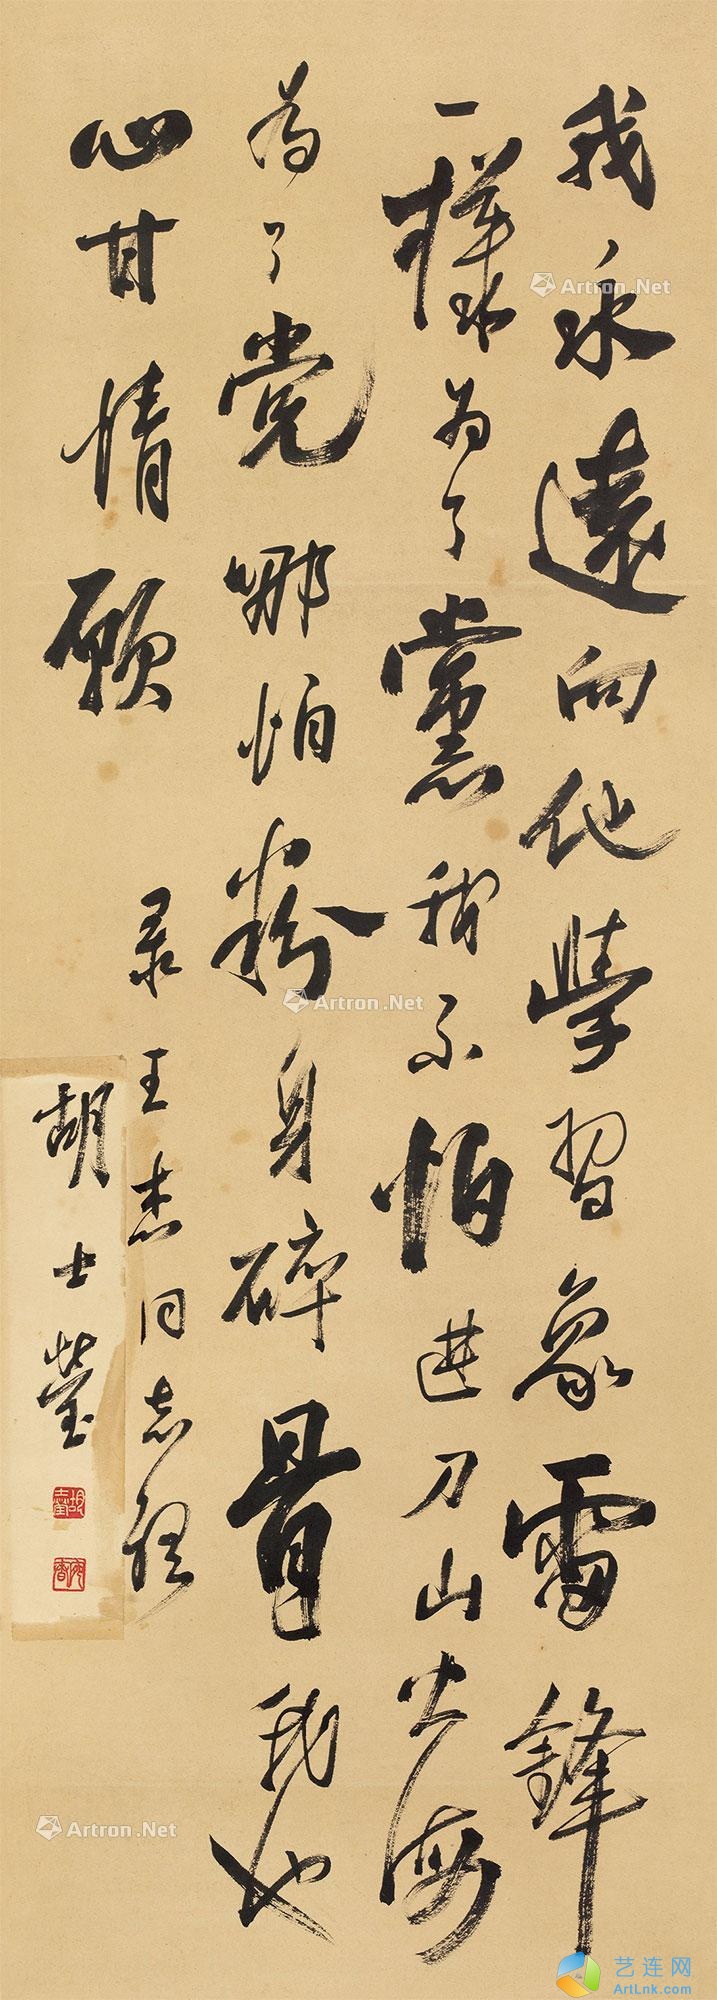 我永遠向他學習象雷鋒
一樣為了黨我不怕進刀山火海
為了党哪怕粉身碎骨我也
心甘情願
录王杰同志語
胡士瑩
Artron.Net
Artron.Net
Artron.Net
艺连网
ArtLnk.com